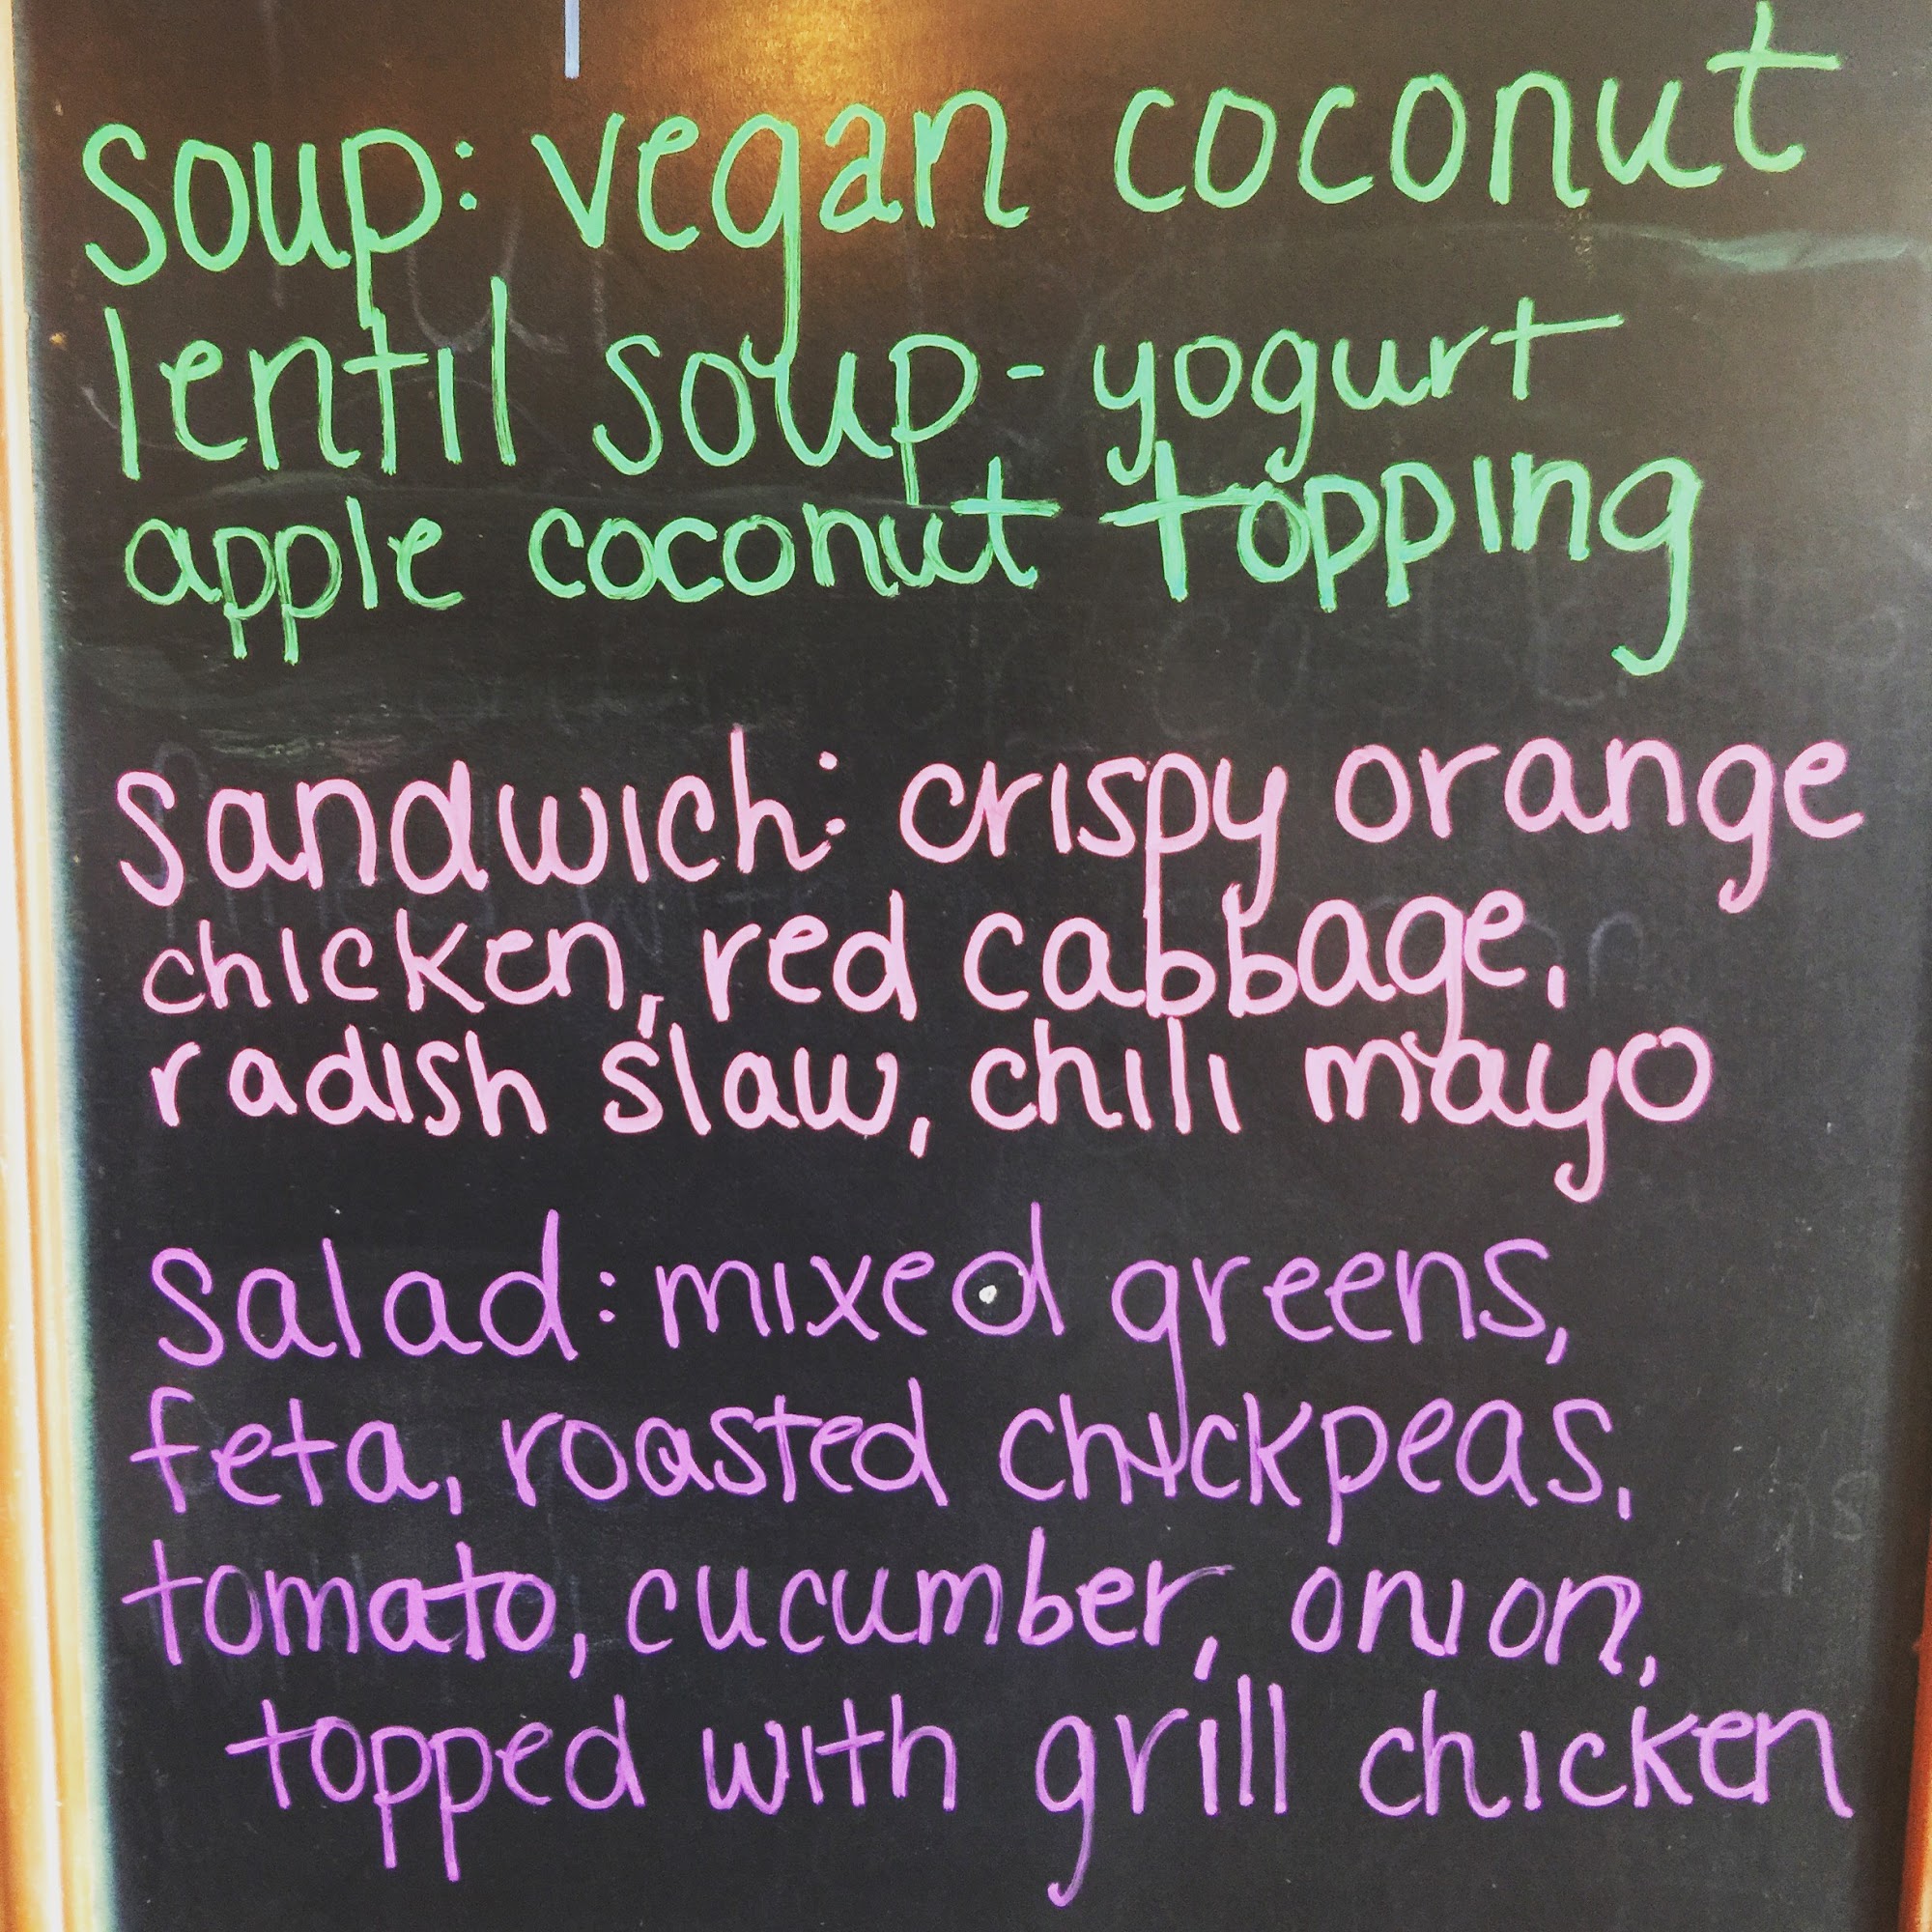 soup: vegan coconut
lentil soup - yogurt
apple coconut topping
sandwich: crispy orange
chicken, red cabbage,
radish slaw, chili mayo
salad: mixed greens,
feta, roasted chickpeas,
tomato, cucumber, onion,
topped with grill chicken